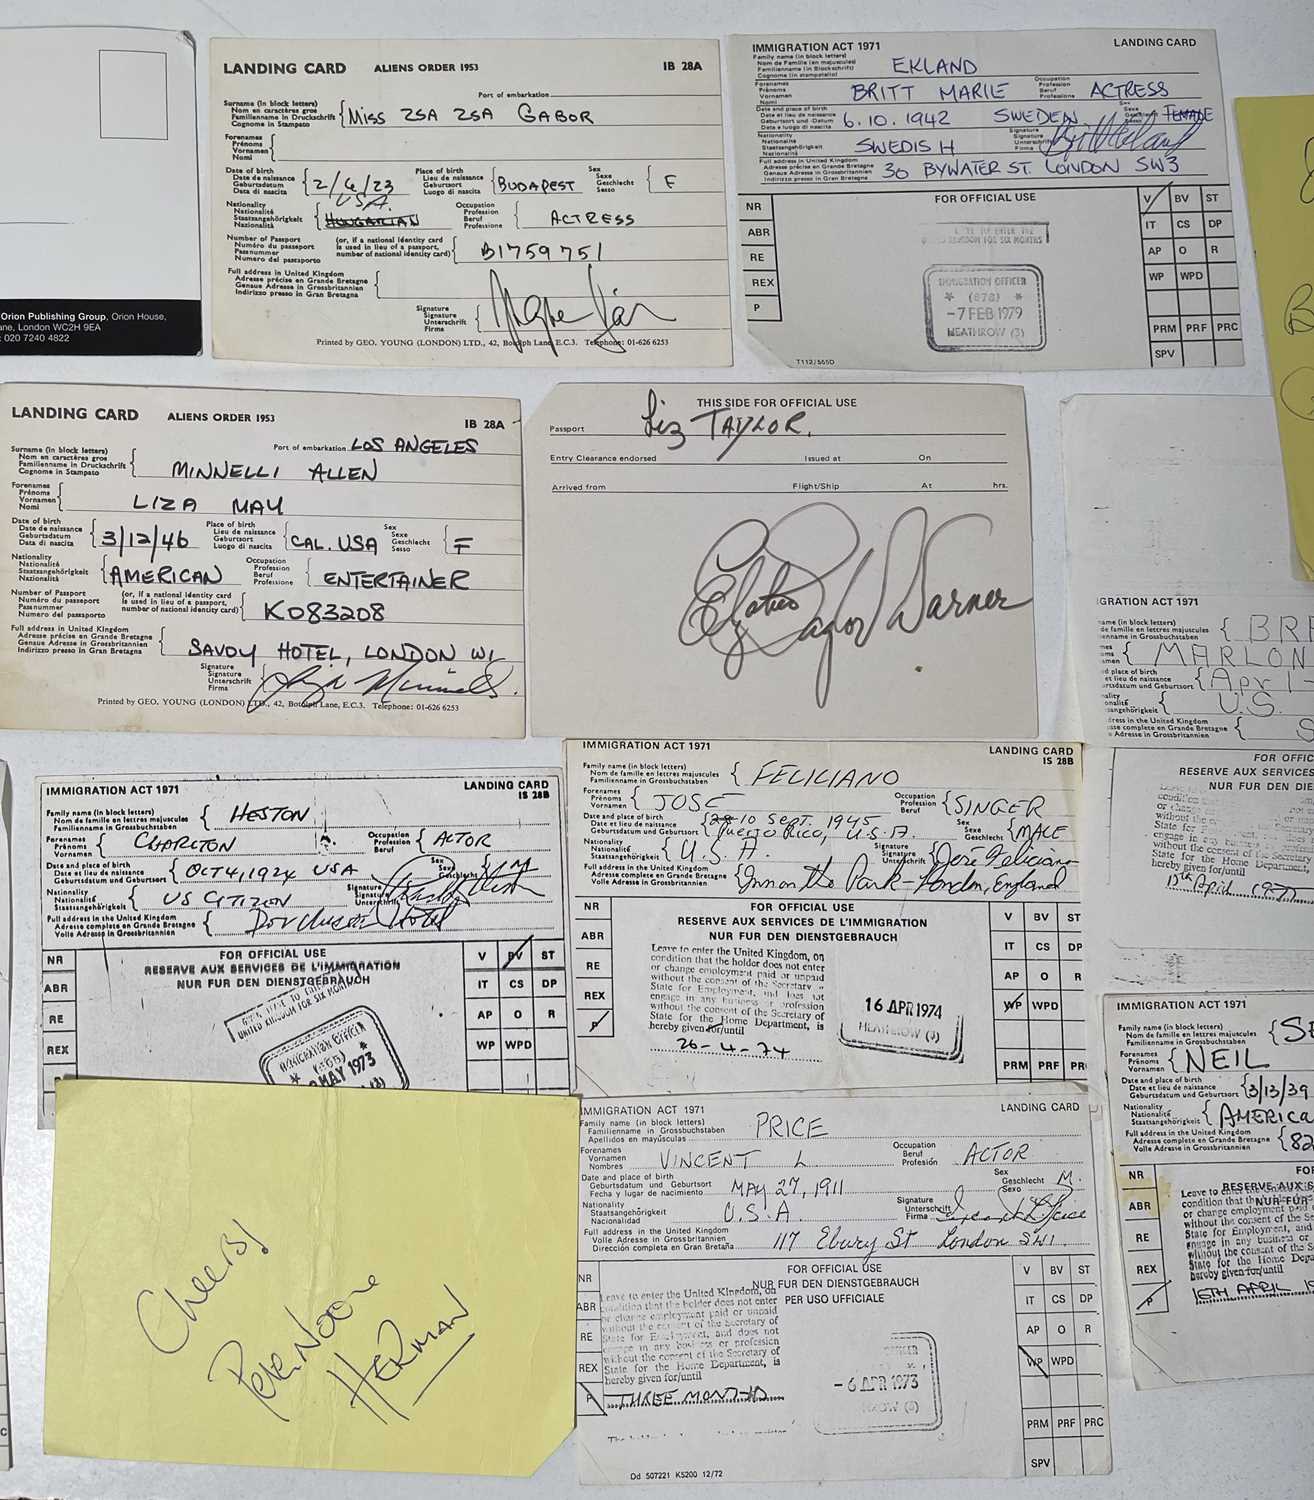 Orion Publishing Group, Orion House,
ane, London WC2H 9EA
: 020 7240 4822
LANDING CARD ALIENS ORDER 1953 IB 28A
Port of embarkation
Surname (in block letters)
Nom en caractères gros
Familienname in Druckschrift
Cognome in Stampato
Miss ZSA ZSA GABOR
Forenames
Prénoms
Vornamen
Nomi
Date of birth
Date de naissance
Geburtsdatum
Data di nascita
2/6/23
Place of birth
Lieu de naissance
Geburtsort
Luogo di nascita
BUDAPEST
Sex
Sexe
Geschlecht
Sesso
F
Nationality
Nationalité
Staatsangehörigkeit
Nazionalità
USA.
HOUGARIAN
Occupation
Profession
Beruf
Professione
ACTRESS
Number of Passport
Numéro du passeport
Passnummer
Numero del passaporto
(or, if a national identity card
is used in lieu of a passport,
number of national identity card)
B1759751
Full address in United Kingdom
Adresse précise en Grande Bretagne
Genaue Adresse in Grossbritannien
Indirizzo presso in Gran Bretagna
Signature
Signature
Unterschrift
Firma
Printed by GEO. YOUNG (LONDON) LTD., 42, Botolph Lane, E.C.3. Telephone: 01-626 6253
IMMIGRATION ACT 1971 LANDING CARD
Family name (in block letters)
Nom de Famille (en majuscules)
Familienname (in Blockschrift)
Cognome (in stampatello)
EKLAND
Forenames
Prénoms
Vornamen
Nomi
BRITT MARIE
Occupation
Profession
Beruf
Professione
ACTRESS
Date and place of birth
Date et lieu de naissance
Geburtsort und -Datum
Data e luogo di nascita
6.10.1942 SWEDEN
Sex
Sexe
FEMALE
Nationality
Nationalité
Staatsangehörigkeit
Nazionalità
SWEDISH
Signature
Signature
Unterschrift
Firma
Full address in United Kingdom
Adresse précise en Grande Bretagne
Genaue Adresse in Grossbritannien
Indirizzo presso in Gran Bretagna
30 BYWATER ST. LONDON SW3
FOR OFFICIAL USE
NR
ABR
RE
REX
P
V BV ST
IT CS DP
AP O R
WP WPD
PRM PRF PRC
SPV
IMMIGRATION OFFICER
* (678) *
-7 FEB 1979
HEATHROW (3)
T112/555D
LANDING CARD ALIENS ORDER 1953 IB 28A
Port of embarkation LOS ANGELES
Surname (in block letters)
Nom en caractères gros
Familienname in Druckschrift
Cognome in Stampato
MINNELLI ALLEN
Forenames
Prénoms
Vornamen
Nomi
LIZA MAY
Date of birth
Date de naissance
Geburtsdatum
Data di nascita
3/12/46
Place of birth
Lieu de naissance
Geburtsort
Luogo di nascita
CAL. USA
Sex
Sexe
Geschlecht
Sesso
F
Nationality
Nationalité
Staatsangehörigkeit
Nazionalità
AMERICAN
Occupation
Profession
Beruf
Professione
ENTERTAINER
Number of Passport
Numéro du passeport
Passnummer
Numero del passaporto
(or, if a national identity card
is used in lieu of a passport,
number of national identity card)
K083208
Full address in United Kingdom
Adresse précise en Grande Bretagne
Genaue Adresse in Grossbritannien
Indirizzo presso in Gran Bretagna
SAVOY HOTEL, LONDON W1
Signature
Signature
Unterschrift
Firma
Printed by GEO. YOUNG (LONDON) LTD., 42, Botolph Lane, E.C.3. Telephone: 01-626 6253
THIS SIDE FOR OFFICIAL USE
Passport Liz TAYLOR.
Entry Clearance endorsed Issued at On
Arrived from Flight/Ship At hrs.
Elizabeth Taylor Warner
IGRATION ACT 1971
BR
MARLON
Apr 1-
U.S.
FOR OFFIC
RESERVE AUX SERVICES
NUR FUR DEN
IMMIGRATION ACT 1971 LANDING CARD
IS 28B
Family name (in block letters)
Nom de famille en lettres majuscules
Familienname in Grossbuchstaben
HESTON
Forenames
Prénoms
Vornamen
CHARLTON
Occupation
Profession
Beruf
ACTOR
Date and place of birth
Date et lieu de naissance
Geburtsdatum und Geburtsort
OCT 4, 1924 USA
Sex
Sexe
Geschlecht
M
Nationality
Nationalité
Staatsangehörigkeit
US CITIZEN
Signature
Signature
Unterschrift
Full address in the United Kingdom
Adresse complete en Grande Bretagne
Volle Adresse in Grossbritannien
Dorchester Hotel
FOR OFFICIAL USE
RESERVE AUX SERVICES DE L'IMMIGRATION
NUR FUR DEN DIENSTGEBRAUCH
NR
ABR
RE
REX
V BV ST
IT CS DP
AP O R
WP WPD
GIVEN LEAVE TO ENTER THE
UNITED KINGDOM FOR SIX MONTHS
IMMIGRATION OFFICER
MAY 1973
IMMIGRATION ACT 1971 LANDING CARD
IS 28B
Family name (in block letters)
Nom de famille en lettres majuscules
Familienname in Grossbuchstaben
FELICIANO
Forenames
Prénoms
Vornamen
JOSE
Occupation
Profession
Beruf
SINGER
Date and place of birth
Date et lieu de naissance
Geburtsdatum und Geburtsort
10 SEPT. 1945
Puerto Rico, U.S.A.
Sex
Sexe
Geschlecht
MALE
Nationality
Nationalité
Staatsangehörigkeit
U.S.A.
Signature
Signature
Unterschrift
José Feliciano
Full address in the United Kingdom
Adresse complete en Grande Bretagne
Volle Adresse in Grossbritannien
Inn on the Park - London, England
FOR OFFICIAL USE
RESERVE AUX SERVICES DE L'IMMIGRATION
NUR FUR DEN DIENSTGEBRAUCH
NR
ABR
RE
REX
P
Leave to enter the United Kingdom, on
condition that the holder does not enter
or change employment paid or unpaid
without the consent of the Secretary of
State for Employment, and does not
engage in any business or profession
without the consent of the Secretary of
State for the Home Department, is
hereby given for/until
26-4-74
16 APR 1974
HEATHROW (3)
V BV ST
IT CS DP
AP O R
WP WPD
PRM PRF PR
IMMIGRATION ACT 1971
Family name (in block letters)
Nom de famille en lettres majuscules
Familienname in Grossbuchstaben
Forenames
Prénoms
Vornamen
NEIL
Date and place of birth
Date et lieu de naissance
Geburtsdatum und Geburtsort
3/13/39
Nationality
Nationalité
Staatsangehörigkeit
AMERICA
Full address in the United Kingdom
Adresse complete en Grande Bretagne
Volle Adresse in Grossbritannien
82
NR
ABR
RE
REX
P
hereby given for/until
16TH APRIL
Cheers!
Peter Noone
HERMAN
IMMIGRATION ACT 1971 LANDING CARD
Family name (in block letters)
Familienname in Grossbuchstaben
Apellidos en mayúsculas
PRICE
Forenames
Vornamen
Nombres
VINCENT L
Occupation
Beruf
Profesión
ACTOR
Date and place of birth
Geburtsdatum und Geburtsort
Fecha y lugar de nacimiento
MAY 27, 1911
Sex
Geschlecht
Sexo
M.
Nationality
Staatsangehörigkeit
Nacionalidad
U.S.A.
Signature
Unterschrift
Firma
Vincent L Price
Full address in the United Kingdom
Volle Adresse in Grossbritannien
Dirección completa en Gran Bretaña
117 Ebury St London SW1.
FOR OFFICIAL USE
NUR FUR DEN DIENSTGEBRAUCH
PER USO UFFICIALE
NR
ABR
RE
REX
P
Leave to enter the United Kingdom, on
condition that the holder does not enter
or change employment paid or unpaid
without the consent of the Secretary of
State for Employment, and does not
engage in any business or profession
without the consent of the Secretary of
State for the Home Department, is
hereby given for/until
THREE MONTHS
-6 APR 1973
V BV ST
IT CS DP
AP O R
WP WPD
PRM PRF PRC
SPV
Dd 507221 K5200 12/72